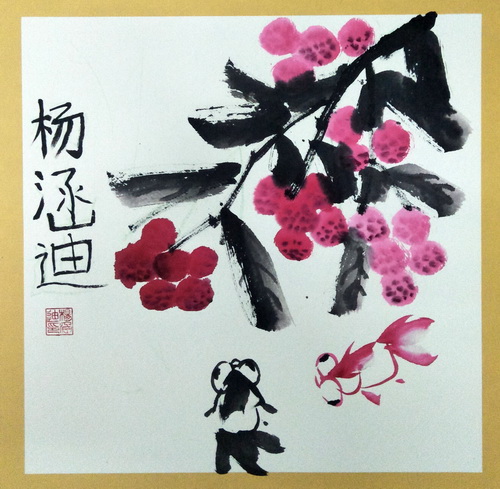 杨涵迪